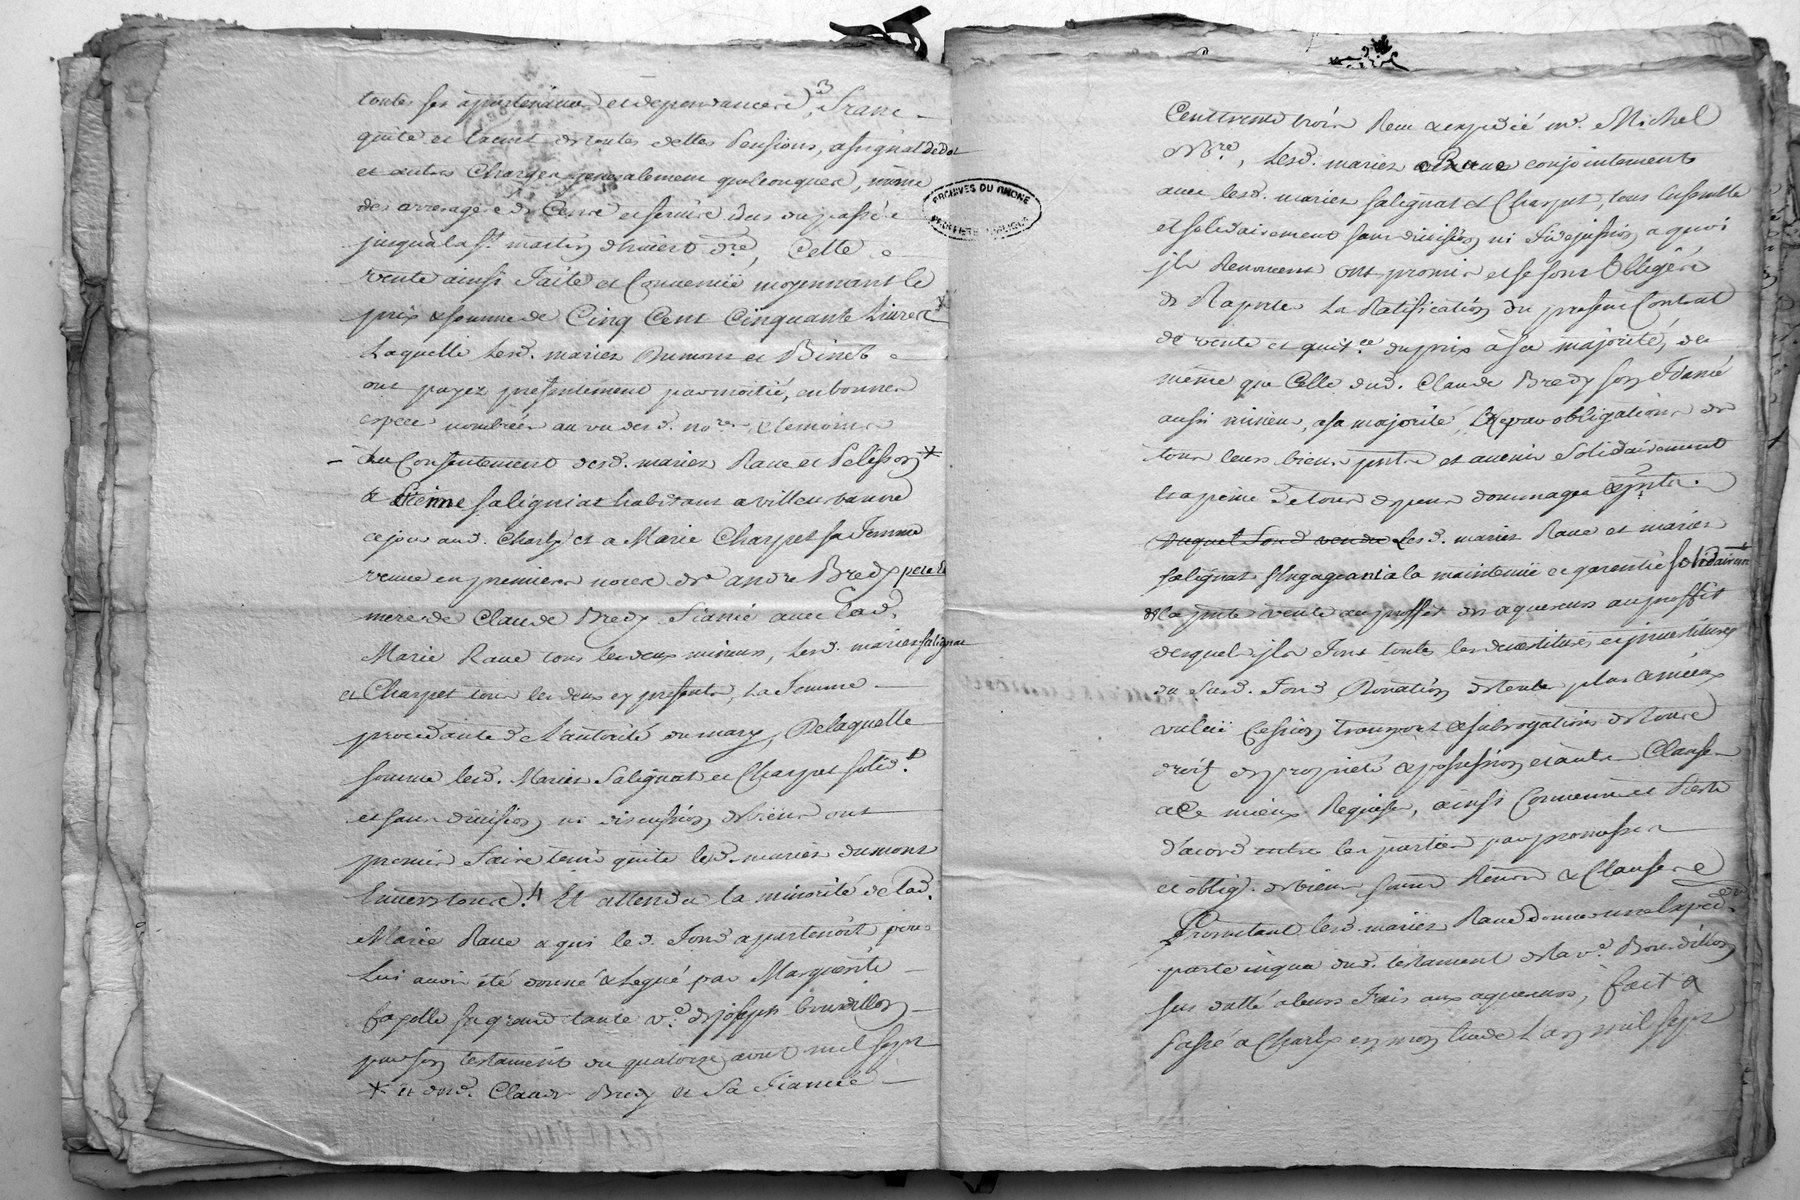 toutes ses apartenances et dependances, franc
quite et exent de toutes dettes pensions, assignat dedot
et autres charges generalement quelconques, même
des arrerages de Cens et servis dus du passé
jusqu'a la st. martin d'hivert dre, Cette
vente ainsi faite et Convenüe moyennant le
prix & somme de Cinq Cent Cinquante Livres
Laquelle lesd. mariez Dumont et Bineb
ont payez presentement par moitié, en bonnes
espece nombrées au vu desd. nore & temoins
du Consentement desd. mariez Raue et Pelisson *
a Saligniat habitant a villeurbanne
ce jour aud. Charly et a Marie Charpet sa femme
venue en premieres noces de andré Bredy pere et
mere de Claude Bredy fiancé avec lad.
Marie Raue tous les deux mineurs, lesd. mariez salignat
et Charpet tous les deux icy presents, la femme
procedante de L'autorité du mary, De laquelle
somme lesd. Mariez Salignat et Charpet solid.t
et sans division ni discussion de biens ont
promis faire tenir quite lesd. mariez dumont
Envers tous. Et attendu la minorité de lad.
Marie Raue a qui led. fond apartenoit pour
Lui avoir été donné & Legué par Marguerite
fayolle sa grand tante ve. de joseph bourdillon
par son testament du quatorze avril mil sept
* et dud. Claude Bredy et sa fiancée
Cent trente trois Receu & expedié me. Michel
Nore, Lesd. mariez Raue conjointement
avec lesd. mariez salignat et Charpet, tous ensemble
et solidairement sans division ni fidejussion a quoi
jls Renoncent ont promis et se sont obligés
de Raporter la Ratification du present Contrat
de vente et quitce. du prix à sa majorité, de
même que Celle dud. Claude Bredy son fiancé
aussi mineur, a sa majorité, par obligations de
tous leurs biens pnts et avenir solidairement
la peine de tous depens dommages & jnts
Duquel fond vendu Lesd. mariez Raue et mariez
salignat s'engageant a la maintenüe et garentie solidairemt
de la pnte vente au proffit des aquereurs au proffit
desquels jls font toutes les devestitures et jnvestitures
du susd. fond Donation de toute plus & mieux
valüe Cession transport & subrogation de tous
droit de proprieté & possession et autres Clauses
a Ce mieux Requises, ainsi Convenu et Resté
d'acord entre les parties par promesses
et oblig. de biens soum Renon & Clauses
Promettant lesd. mariez Raue donner une Expedon.
parte inqua dud. testament de la ve. Bourdillon
sus datté a leurs frais aux aquereurs, fait &
passé a Charly en mon Etude L'an mil sept
ARCHIVES DU RHONE